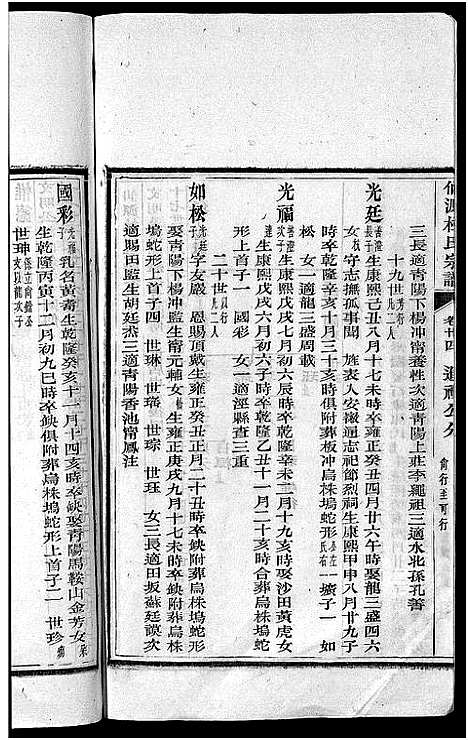 仙源林氏宗譜 卷廿四
三長適青陽下楊冲甯養性次適青陽上莊李繩祖三適水北孫孔善
十九世 芳行 凡二人
光廷 善澄長子 生康熙己丑八月十七未時卒雍正癸丑四月廿六午時娶龍三盛四六
女守志撫孤事聞 旌表人安徽通志祀節烈祠生康熙甲申八月廿九子
時卒乾隆辛亥十月三十亥時俱附葬板冲烏株塢蛇形 公左氏右 一壙子一 如
松 女一適龍三盛周載
光福 善澄次子 生康熙戊戌六月初六辰時卒乾隆辛未二月十九寅時娶沙田黃虎女
生康熙戊戌六月初六子時卒乾隆乙丑十一月二十亥時合葬烏株塢蛇
形上首子一 國彩 女一適涇縣查三重
二十世 凡二人
如松 光廷子 字友嚴 恩賜頂戴生雍正癸丑正月二十丑時卒缺附葬烏株塢蛇形
娶青陽下楊冲監生甯元輔女生雍正庚戌九月十七未時卒缺附葬烏株
塢蛇形上首子四 世琳 世琦 世琮 世珏 女三長適田坂蘇廷謨次
適賜田監生胡廷烋三適青陽香池甯鳳注
國彩 光福子 乳名黃壽生乾隆癸亥十一月十四亥時卒缺娶青陽馬鞍山金芳女
生乾隆丙寅十二月初九巳時卒缺俱附葬烏株塢蛇形上首子二 世珍
世琿